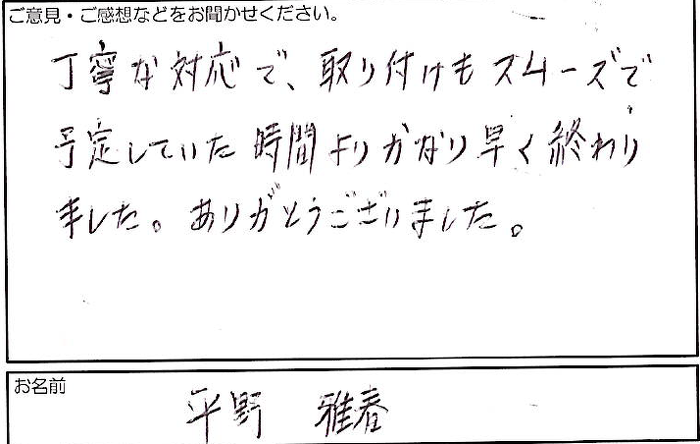 ご意見・ご感想などをお聞かせください。
丁寧な対応で、取り付けもスムーズで
予定していた時間よりかなり早く終わり
ました。ありがとうございました。
お名前
平野 雅春